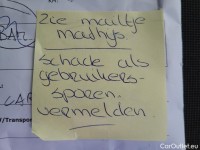 Zie mailtje
mathys
schade als
gebruikers-
sporen.
vermelden.
BAT
CAR
/Transpo
CarOutlet.eu